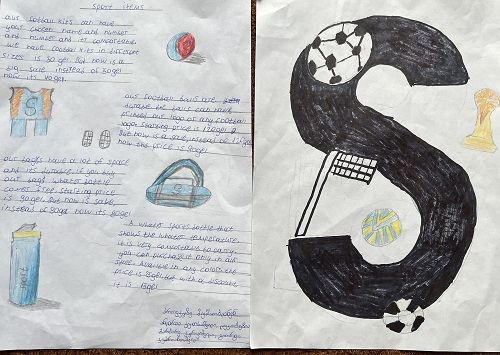 Sport items
our football kits can have
your chosen name and number
and number and its comfortable.
we have football kits in different
sizes is 80 gel. But now is a
big sale instead of 80gel
now its 40gel.
our football balls are
durable the balls can have
printed one logo of any football
logo. Starting price is 120gel
But now is a sale, instead of 120gel
now the price is 90gel
our bags have a lot of space
and its durable if you buy
our bag whater bottle
comes free. Starting price
is 80gel. but now is sale,
instead of 80gel now its 60gel
A whater sports bottle that
shows the whater temperature.
it is very comfortable to carry,
you can purchase it only in our
store. Available in any colors. the
price is 8gel but with a discount
it is 6gel
S
Sport